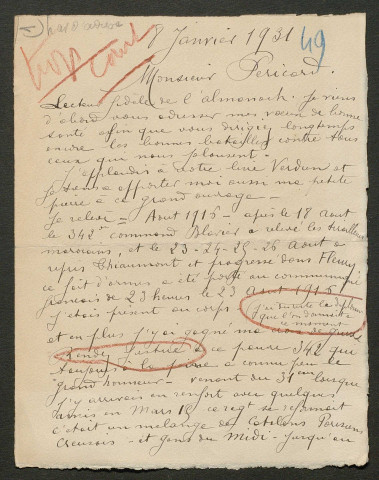 pas d'adresse
trop court
8 Janvier 1931
49
Monsieur Péricard.
Lecteur fidèle de l'almanach. Je viens
d'abord vous adresser mes vœux de bonne
santé afin que vous dirigiez longtemps
encore les bonnes batailles contre tous
ceux qui nous jalousent.
J'applaudis à votre livre Verdun et
je tiens à apporter moi aussi ma petite
pierre à ce grand ouvrage -
Je relève - Aout 1916 - après le 18 aout
le 342e command Blavier a relevé les tirailleurs
marocains, et le 23-24-25-26 Aout a
repris Thiaumont et progressé dans Fleury
ce fait d'armes a été porté au communiqué
français de 23 heures le 23 Aout 1916
j'étais présent au corps
que l'on donnait
ce moment
et en plus j'y ai gagné ma croix de guerre
Rendez justice à ce pauvre 342 que
toujours la guerre a connu peu le
grand honneur - venant du 31e lorsque
j'y arrivais en renfort avec quelques
amis en Mars 16 ce regt se reformait
c'était un mélange de Catalans Parisiens
Creusois - et gens du Midi - jusqu'au